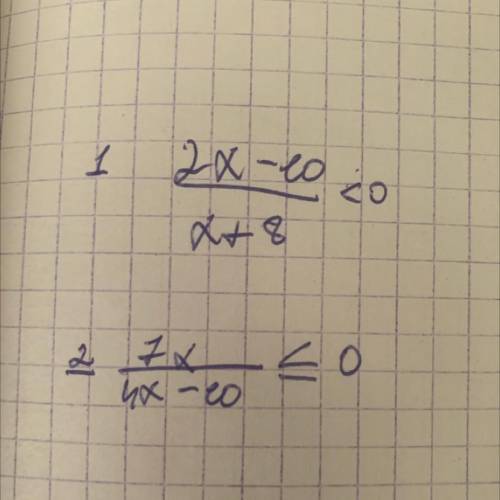 1 (2x-10)/(x+8) <0
2 7x/(4x-10) ≤ 0